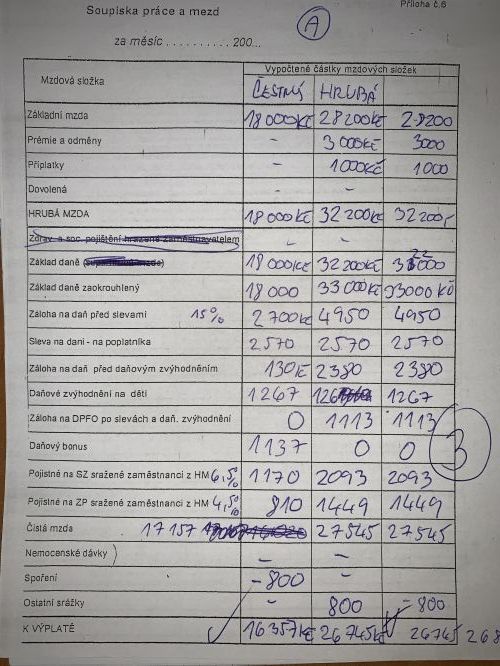 Příloha č.6
Soupiska práce a mezd
A
za měsíc .......... 200...
Mzdová složka
Vypočtené částky mzdových složek
ČESTNÝ HRUBÁ
Základní mzda 18 000Kč 28 200Kč 28200
Prémie a odměny - 3 000Kč 3000
Příplatky - 1000Kč 1000
Dovolená - -
HRUBÁ MZDA 18 000Kč 32 200Kč 32 200,-
Zdrav. a soc. pojištění hrazené zaměstnavatelem - -
Základ daně 18 000Kč 32 200Kč
Základ daně zaokrouhlený 18 000 33 000Kč 33000 Kč
Záloha na daň před slevami 15% 2 700Kč 4950 4950
Sleva na dani - na poplatníka 2570 2570 2570
Záloha na daň před daňovým zvýhodněním 130Kč 2380 2380
Daňové zvýhodnění na děti 1267 1267
Záloha na DPFO po slevách a daň. zvýhodnění 0 1113 1113
Daňový bonus 1137 0 0
3
Pojistné na SZ sražené zaměstnanci z HM 6,5% 1170 2093 2093
Pojistné na ZP sražené zaměstnanci z HM 4,5% 810 1449 1449
Čistá mzda 17 157 27545 27545
Nemocenské dávky - -
Spoření -800 -
Ostatní srážky - 800 -800
K VÝPLATĚ 16 357Kč 26 745Kč 26745 268